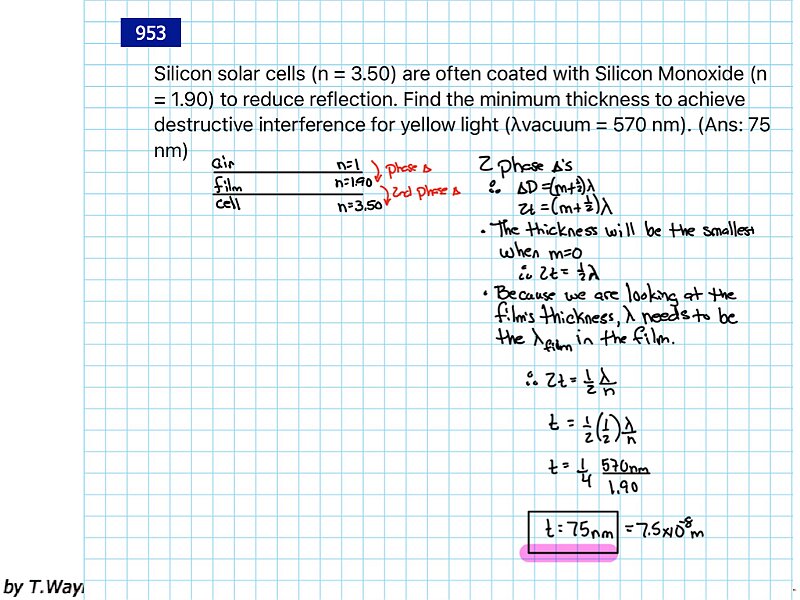 953
Silicon solar cells (n = 3.50) are often coated with Silicon Monoxide (n
= 1.90) to reduce reflection. Find the minimum thickness to achieve
destructive interference for yellow light (λvacuum = 570 nm). (Ans: 75
nm)
air n=1 phase Δ
film n=1.90 2nd phase Δ
cell n=3.50
2 phase Δ's
∴ ΔD=(m+½)λ
2t=(m+½)λ
• The thickness will be the smallest
when m=0
∴ 2t=½λ
• Because we are looking at the
film's thickness, λ needs to be
the λfilm in the film.
∴ 2t=1/2 λ/n
t = 1/2(1/2)λ/n
t= 1/4 570nm/1.90
t=75nm =7.5x10⁻⁸m
by T.Way